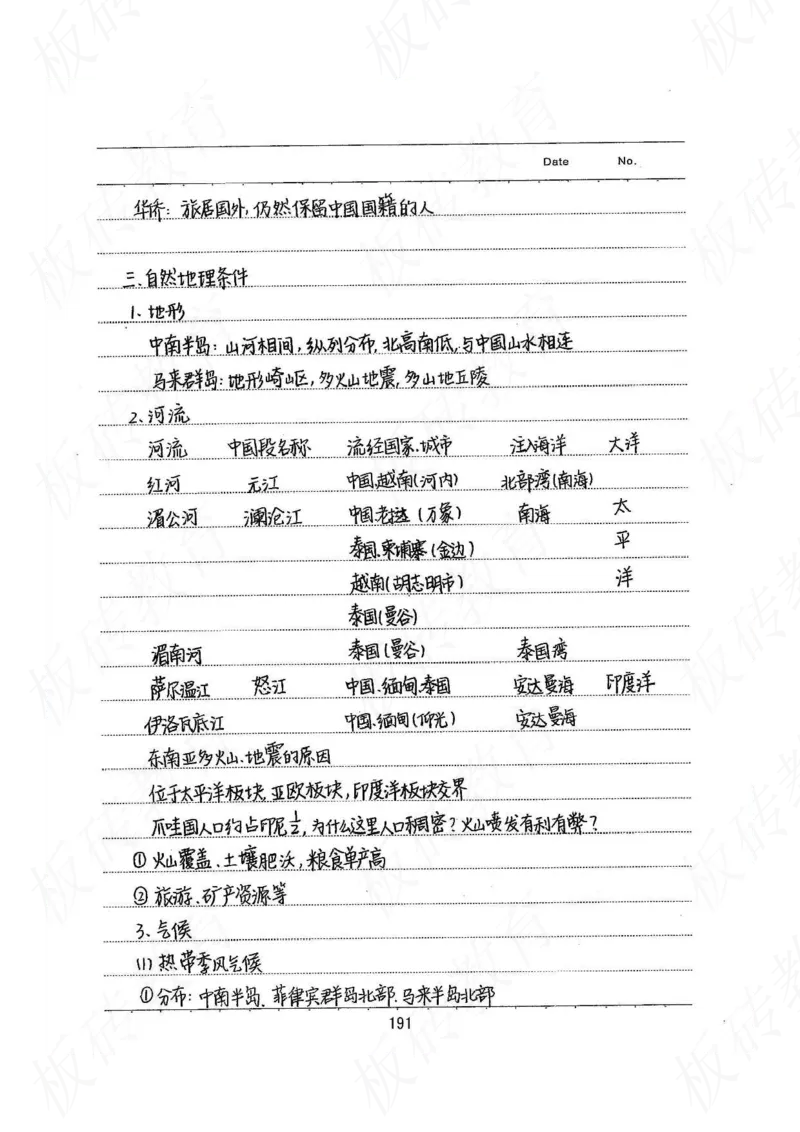 Date No.
华侨: 旅居国外,仍然保留中国国籍的人
三、自然地理条件
1、地形
中南半岛: 山河相间,纵列分布,北高南低,与中国山水相连
马来群岛: 地形崎岖,多火山地震,多山地丘陵
2、河流
河流 中国段名称 流经国家、城市 注入海洋 大洋
红河 元江 中国、越南(河内) 北部湾(南海)
湄公河 澜沧江 中国、老挝(万象) 南海 太
泰国、柬埔寨(金边) 平
越南(胡志明市) 洋
泰国(曼谷)
湄南河 泰国(曼谷) 泰国湾
萨尔温江 怒江 中国、缅甸、泰国 安达曼海 印度洋
伊洛瓦底江 中国、缅甸(仰光) 安达曼海
东南亚多火山、地震的原因
位于太平洋板块、亚欧板块,印度洋板块交界
爪哇国人口约占印尼1/2,为什么这里人口稠密?火山喷发有利有弊?
①火山覆盖、土壤肥沃,粮食单产高
②旅游、矿产资源等
3、气候
(1)热带季风气候
①分布: 中南半岛、菲律宾群岛北部、马来半岛北部
191
板砖教育